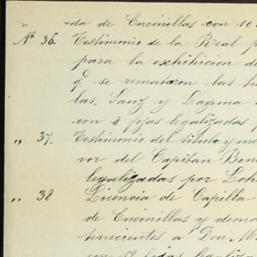 " da de Encinillas con 10
Nº 36. Testimonio de la Real p
para la exhibicion de
q. se remataron las ha
las. Sanz y Laguna
con 8 fojas legalizadas p
" 37. Testimonio del titulo y me
vor del Capitan Ben
legalizadas por Loh
" 38 Licencia de Capilla
de Encinillas y demas
tenecientes a Don M
con 12 fojas